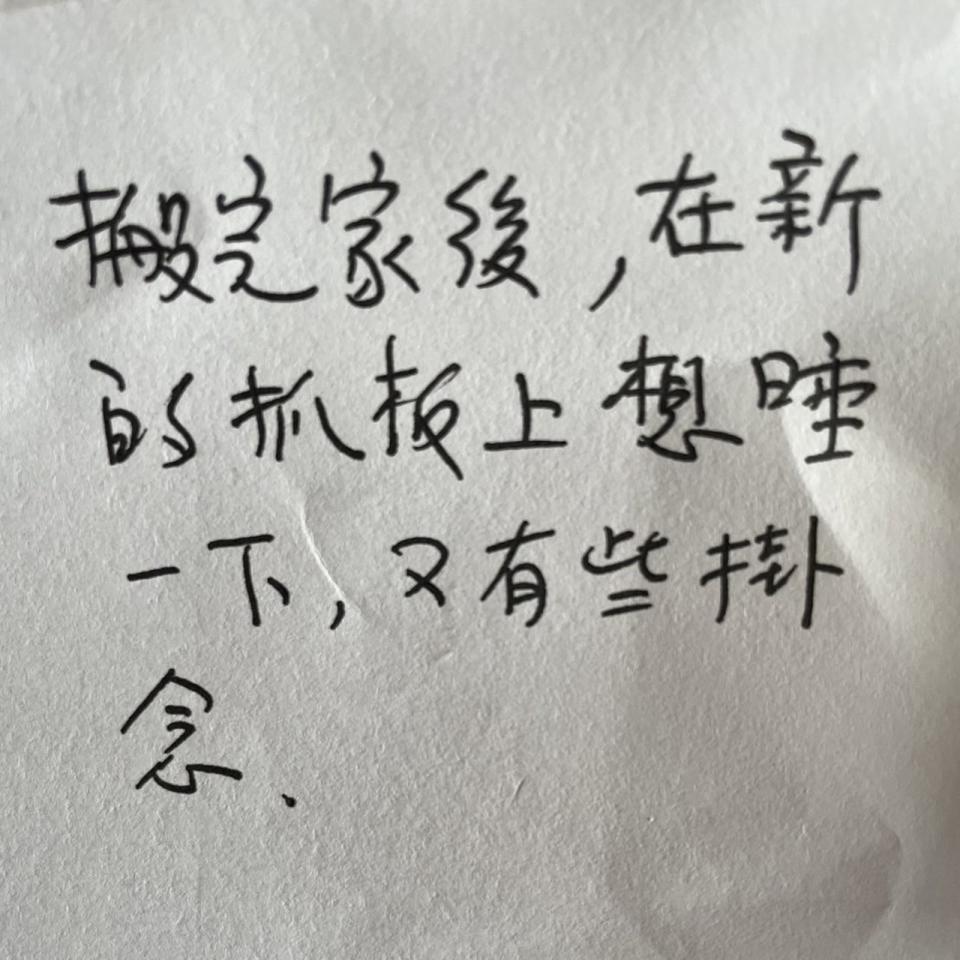 搬完家後,在新
的抓板上想睡
一下,又有些掛
念.